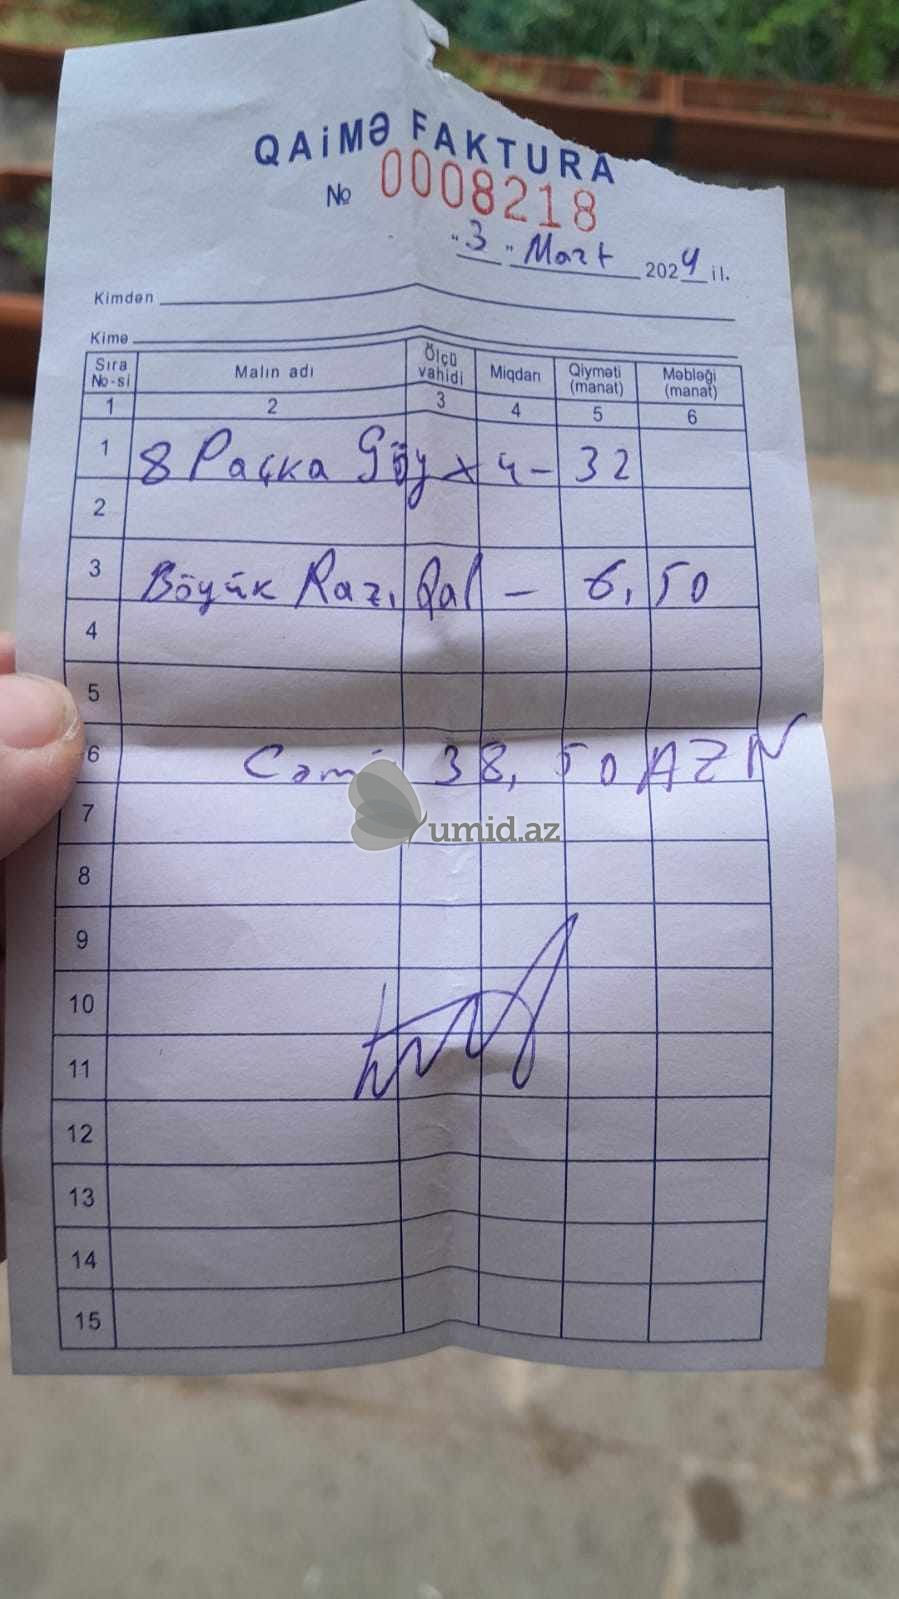 QAİMƏ FAKTURA
№ 0008218
"3" Mart 2024 il.
Kimdən
Kimə
Sıra No-si Malın adı Ölçü vahidi Miqdarı Qiyməti (manat) Məbləği (manat)
1 2 3 4 5 6
1 8 Paçka Göy x 4 - 32
2
3 Böyük Raz. Qal - 6,50
4
5
6 Cəmi 38,50 AZN
7
umid.az
8
9
10
11
12
13
14
15